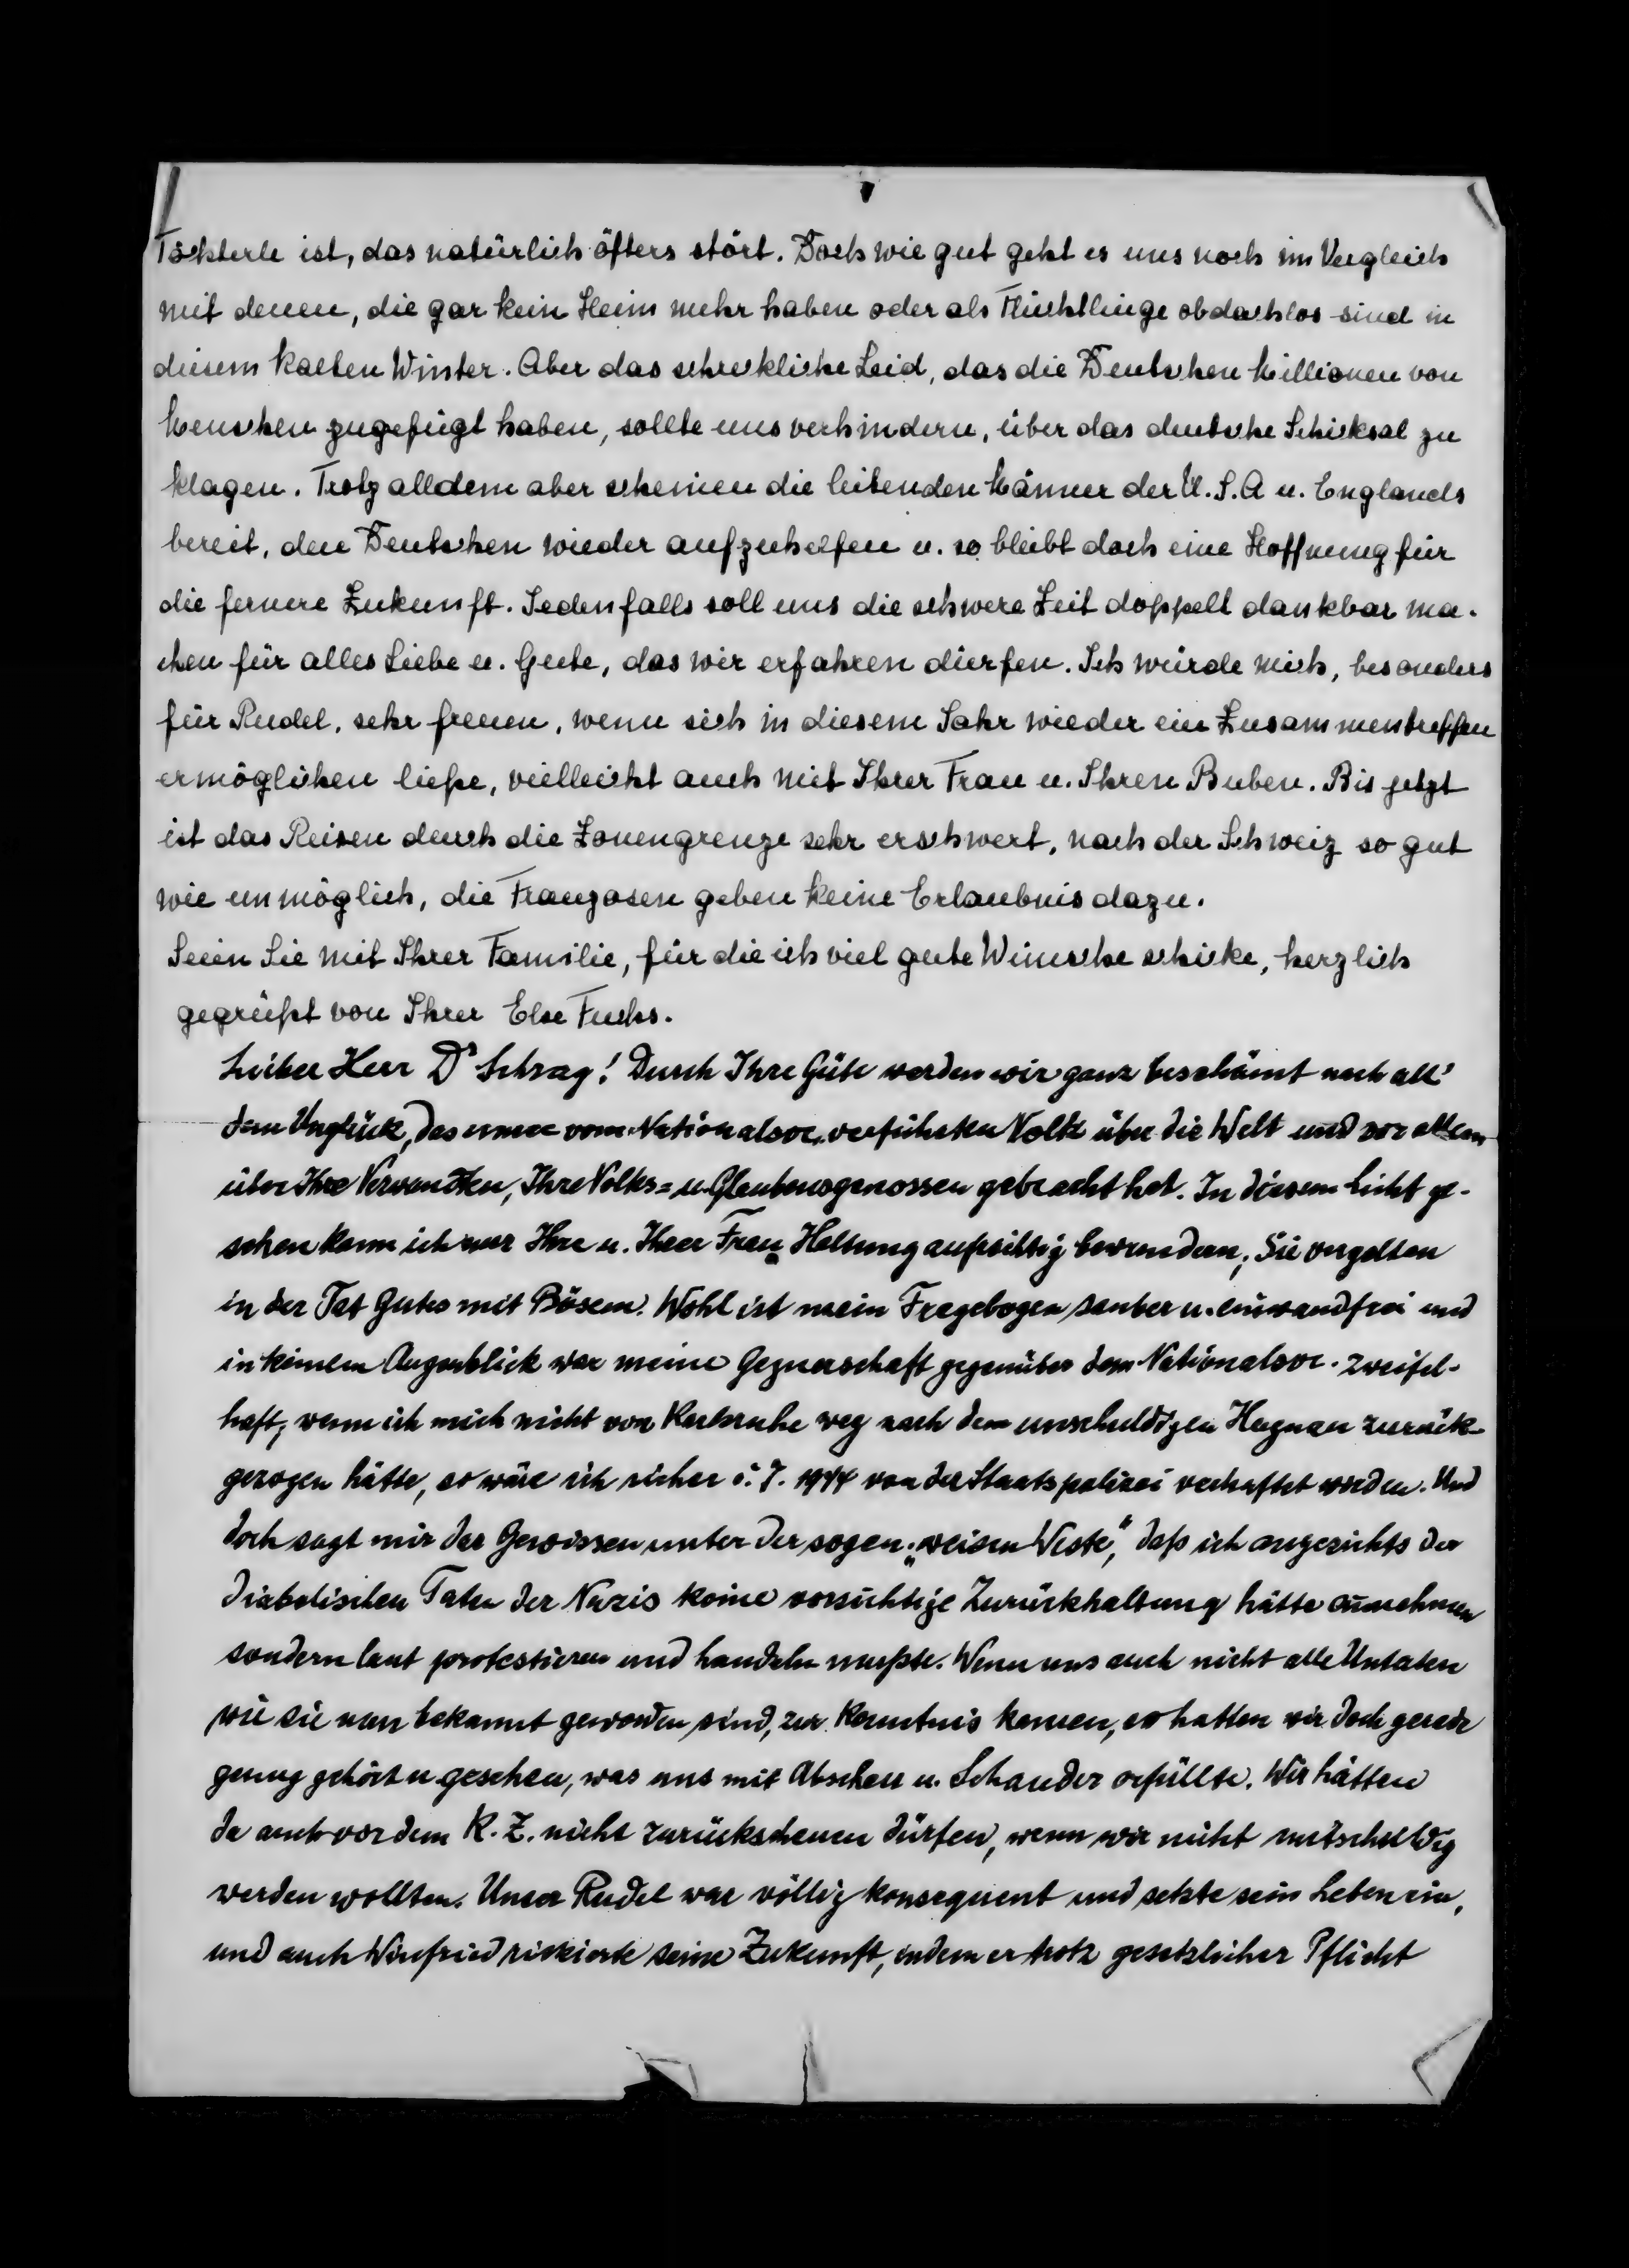 Töchterle ist, das natürlich öfters stört. Doch wie gut geht es uns noch im Vergleich
mit denen, die gar kein Heim mehr haben oder als Flüchtlinge obdachlos sind in
diesem kalten Winter. Aber das schreckliche Leid, das die Deutschen Millionen von
Menschen zugefügt haben, sollte uns verhindern, über das deutsche Schicksal zu
klagen. Trotz alldem aber scheinen die leitenden Männer der U.S.A u. Englands
bereit, den Deutschen wieder aufzuhelfen u. so bleibt doch eine Hoffnung für
die fernere Zukunft. Jedenfalls soll uns die schwere Zeit doppelt dankbar ma-
chen für alles Liebe u. Gute, das wir erfahren dürfen. Ich würde mich, besonders
für Rudel, sehr freuen, wenn sich in diesem Jahr wieder ein Zusammentreffen
ermöglichen ließe, vielleicht auch mit Ihrer Frau u. Ihren Buben. Bis jetzt
ist das Reisen durch die Zonengrenze sehr erschwert, nach der Schweiz so gut
wie unmöglich, die Franzosen geben keine Erlaubnis dazu.
Seien Sie mit Ihrer Familie, für die ich viel gute Wünsche schicke, herzlich
gegrüßt von Ihrer Else Fuchs.
Lieber Herr Dr Schrag! Durch Ihre Güte werden wir ganz beschämt nach all'
dem Unglück, das unser vom Nationalsoc. verführten Volk über die Welt und vor allem
über Ihre Verwandten, Ihre Volks= u. Glaubensgenossen gebracht hat. In diesem Licht ge-
sehen kann ich nur Ihre u. Ihrer Frau Haltung aufrichtig bewundern; Sie vergelten
in der Tat Gutes mit Bösem. Wohl ist mein Fragebogen sauber u. einwandfrei und
in keinem Augenblick war meine Gegnerschaft gegenüber dem Nationalsoc. zweifel-
haft; wenn ich mich nicht von Karlsruhe weg nach dem unschuldigen Hagnau zurück-
gezogen hätte, so wäre ich sicher i. J. 1944 von der Staatspolizei verhaftet worden. Und
doch sagt mir das Gewissen unter der sogen. „weisen Weste", daß ich angesichts der
diabolischen Taten der Nazis keine vorsichtige Zurückhaltung hätte annehmen
sondern laut protestieren und handeln mußte. Wenn uns auch nicht alle Untaten
wie sie nun bekannt geworden sind, zur Kenntnis kamen, so hatten wir doch gerade
genug gehört u. gesehen, was uns mit Abscheu u. Schauder erfüllte. Wir hätten
da auch vor dem K.Z. nicht zurückscheuen dürfen, wenn wir nicht mitschuldig
werden wollten. Unser Rudel war völlig konsequent und setzte sein Leben ein,
und auch Winfried riskierte seine Zukunft, indem er trotz gesetzlicher Pflicht